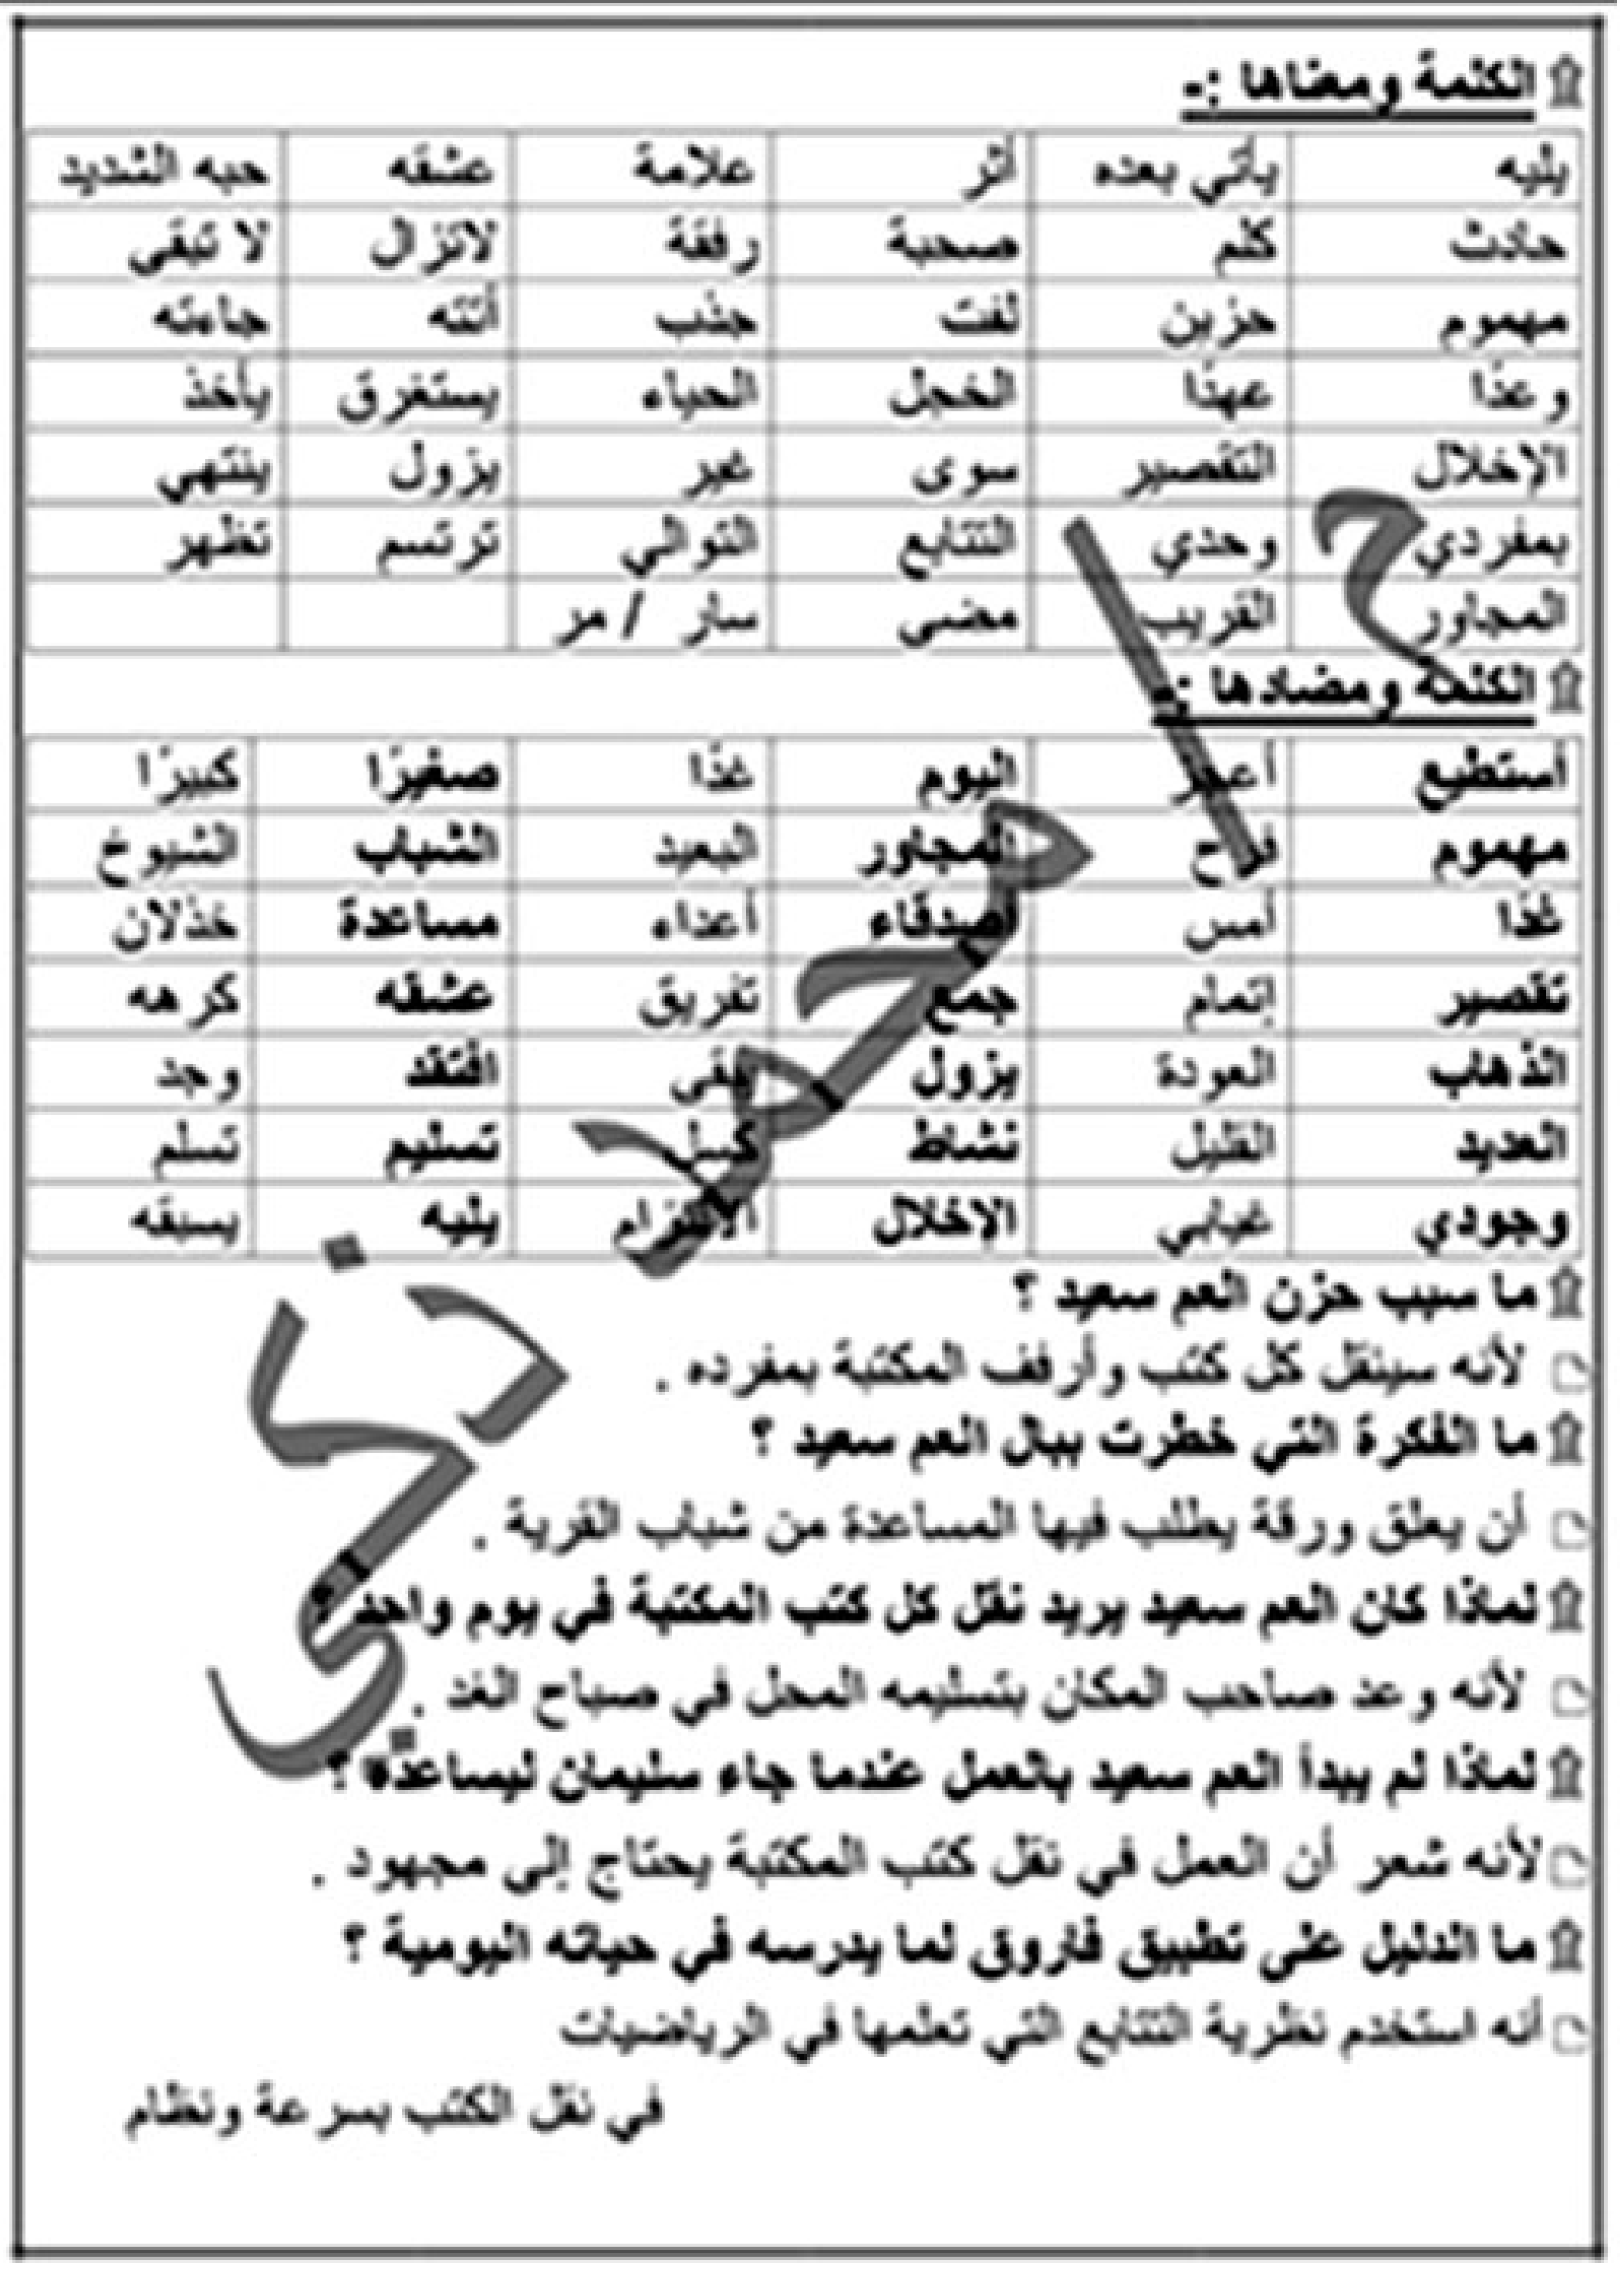 الكلمة ومعناها :-
يليه يأتي بعده أثر علامة عشقه حبه الشديد
حادث كلم صحبة رفقة لاتزال لا تبقى
مهموم حزين لفت جذب أتته جاءته
وعدًا عهدًا الخجل الحياء يستغرق يأخذ
الإخلال التقصير سوى غير يزول ينتهي
بمفردي وحدي التتابع التوالي ترتسم تظهر
المجاور القريب مضى سار / مر
الكلمة ومضادها :-
أستطيع أعجز اليوم غدًا صغيرًا كبيرًا
مهموم فرح المجاور البعيد الشباب الشيوخ
غدًا أمس أصدقاء أعداء مساعدة خذلان
تقصير إتمام جمع تفريق عشقه كرهه
الذهاب العودة يزول يبقى افتقد وجد
العديد القليل نشاط كسل تسليم تسلم
وجودي غيابي الإخلال الالتزام يليه يسبقه
ما سبب حزن العم سعيد ؟
لأنه سينقل كل كتب وأرفف المكتبة بمفرده .
ما الفكرة التي خطرت ببال العم سعيد ؟
أن يعلق ورقة يطلب فيها المساعدة من شباب القرية .
لماذا كان العم سعيد يريد نقل كل كتب المكتبة في يوم واحد ؟
لأنه وعد صاحب المكان بتسليمه المحل في صباح الغد .
لماذا لم يبدأ العم سعيد بالعمل عندما جاء سليمان ليساعده ؟
لأنه شعر أن العمل في نقل كتب المكتبة يحتاج إلى مجهود .
ما الدليل على تطبيق فاروق لما يدرسه في حياته اليومية ؟
أنه استخدم نظرية التتابع التي تعلمها في الرياضيات
في نقل الكتب بسرعة ونظام